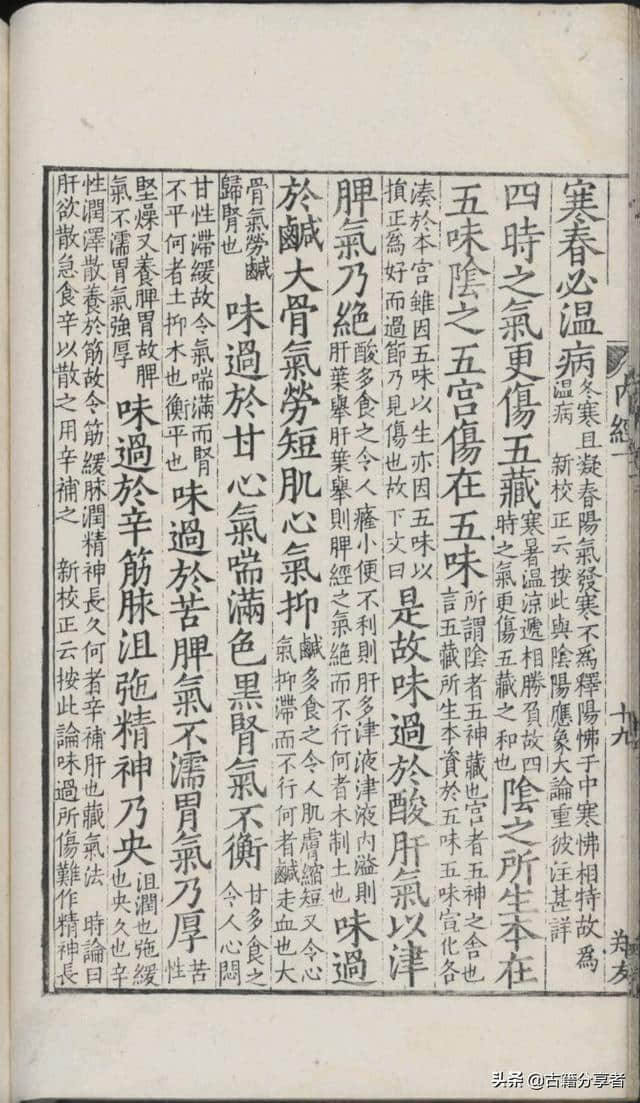 寒春必温病冬寒且凝春陽氣發寒不爲釋陽怫于中寒怫相持故爲温病 新校正云按此與陰陽應象大論重彼注甚詳
四時之氣更傷五藏寒暑温涼遞相勝負故四時之氣更傷五藏之和也陰之所生本在
五味陰之五宫傷在五味所謂陰者五神藏也宫者五神之舍也言五藏所生本資於五味五味宣化各
湊於本宫雖因五味以生亦因五味以損正爲好而過節乃見傷也故下文曰是故味過於酸肝氣以津
脾氣乃絶酸多食之令人癃小便不利則肝多津液津液内溢則肝葉舉肝葉舉則脾經之氣絶而不行何者木制土也味過
於鹹大骨氣勞短肌心氣抑鹹多食之令人肌膚縮短又令心氣抑滯而不行何者鹹走血也大
骨氣勞鹹歸腎也味過於甘心氣喘滿色黑腎氣不衡甘多食之令人心悶
甘性滯緩故令氣喘滿而腎不平何者土抑木也衡平也味過於苦脾氣不濡胃氣乃厚苦性
堅燥又養脾胃故脾氣不濡胃氣強厚味過於辛筋脉沮弛精神乃央沮潤也弛緩也央久也辛
性潤澤散養於筋故令筋緩脉潤精神長久何者辛補肝也藏氣法 時論曰肝欲散急食辛以散之用辛補之 新校正云按此論味過所傷難作精神長
内經一
十九
头条 @古籍分享者